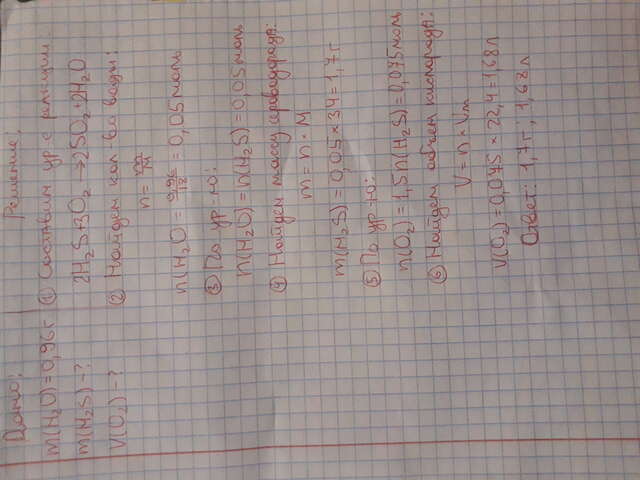 Дано:
Решение:
m(H₂O)=0,96г
① Составим ур-е реакции:
m(H₂S)-?
2H₂S+3O₂→2SO₂+2H₂O
V(O₂)-?
② Найдем кол-во воды:
n=m/M
n(H₂O=0,96/18=0,05моль
③ По ур-ю:
n(H₂O)=n(H₂S)=0,05моль
④ Найдем массу сероводорода:
m=n·M
m(H₂S)=0,05×34=1,7г
⑤ По ур-ю:
n(O₂)=1,5n(H₂S)=0,075моль
⑥ Найдем объем кислорода:
V=n×Vm
V(O₂)=0,075×22,4=1,68л
Ответ: 1,7г; 1,68л